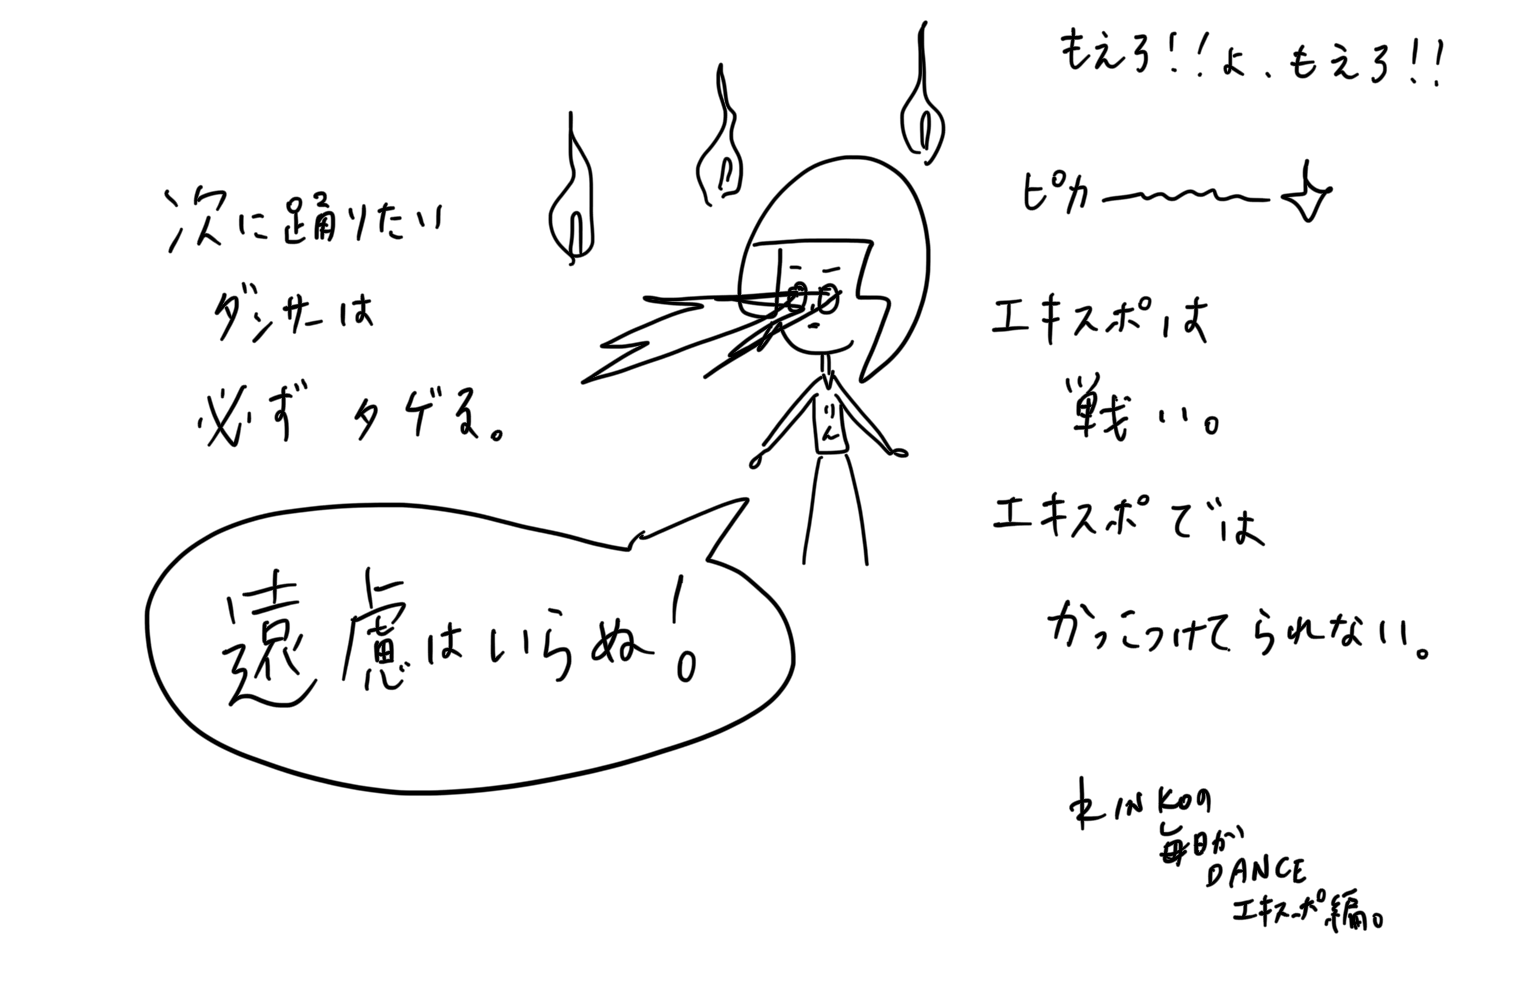 もえろ!!よ、もえろ!!
ピカ
次に踊りたい
ダンサーは
必ずタゲる。
エキスポは
戦い。
エキスポでは
かっこつけてられない。
りん
遠慮はいらぬ!
RINKOの
毎日が
DANCE
エキスポ編。